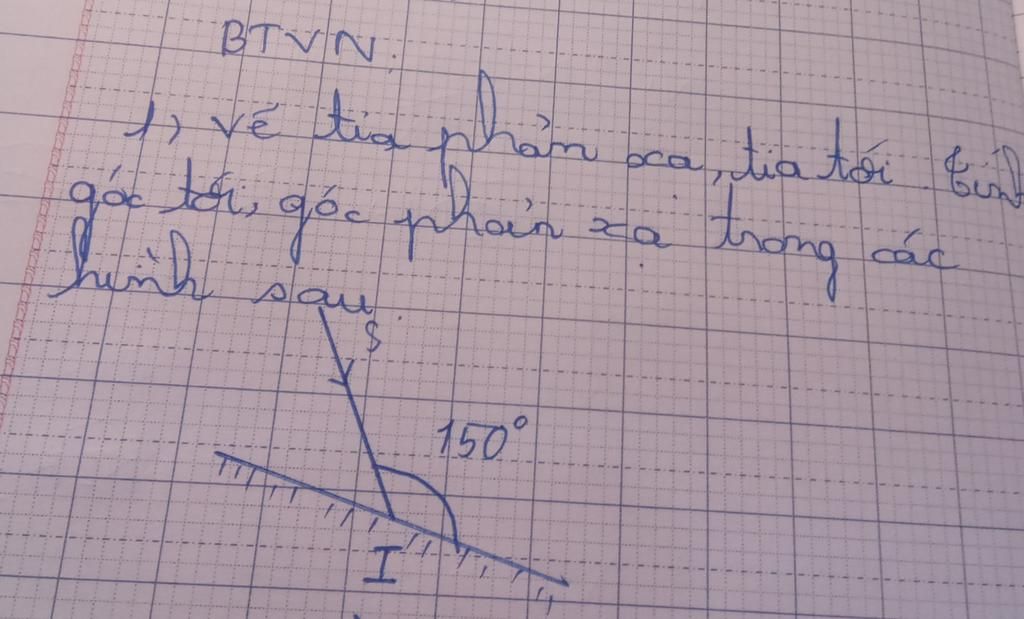 BTVN.
1, vẽ tia phản xạ, tia tới. tính
góc tới, góc phản xạ trong các
hình sau.
S
150°
I